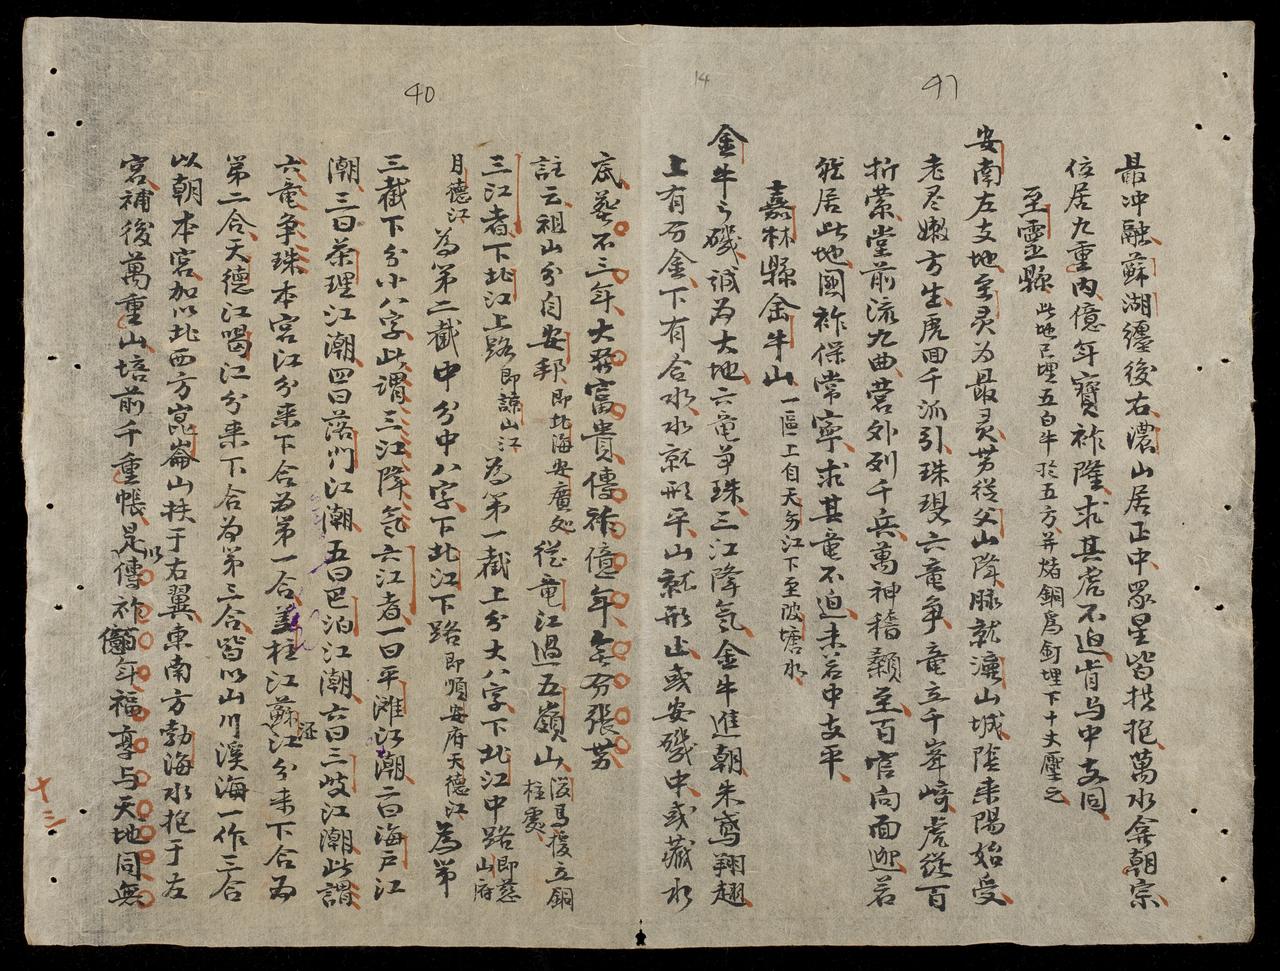 47
最冲融蘇湖纏後右濃山居正中眾星皆拱抱萬水會朝宗
位居九重內億年寶祚隆求其虎不迫肯与中支同
至靈縣 此地已埋五白牛於五方并熔銅為釘埋下十丈壓之
安南左支地至灵为最灵势從父山降脉就濂山城陰來陽始受
老尽嫩方生虎回千派引珠現六竜争竜立千峯崎虎繞百
折縈堂前流九曲营外列千兵萬神稽顙至百官向面迎若
能居此地國祚保常寧求其竜不迫未若中支平
嘉林縣金牛山 一區上自天穷江下至陂塘水
金牛之磯誠为大地六竜争珠三江降氣金牛進朝朱鳶翔趨
上有万金下有合水水就形平山就形止或安磯中或藏水
14
底葬不三年大發富貴傳祚億年無穷張势
註云祖山分自安邦 即北海安廣处 從竜江過五嶺山 漢馬援立銅柱處
三江者下北江上路 即諒山江 為第一截上分大八字下北江中路 即慈山府
月德江 為第二截中分中八字下北江下路 即順安府天德江 為第
三截下分小八字此謂三江降氣六江者一曰平滩江潮二曰海戸江
潮三曰茶理江潮四曰落門江潮五曰巴泊江潮六曰三岐江潮此謂
六竜争珠本宮江分来下合为第一合盖桂江蘇江分来下合为
第二合天德江喝江分来下合为第三合皆以山川溪海一作三合
以朝本宮加以北西方崑崙山扶于右翼東南方勃海水抱于左
宮補後萬重山培前千重帳是以傳祚億年福享与天地同無
40
十三